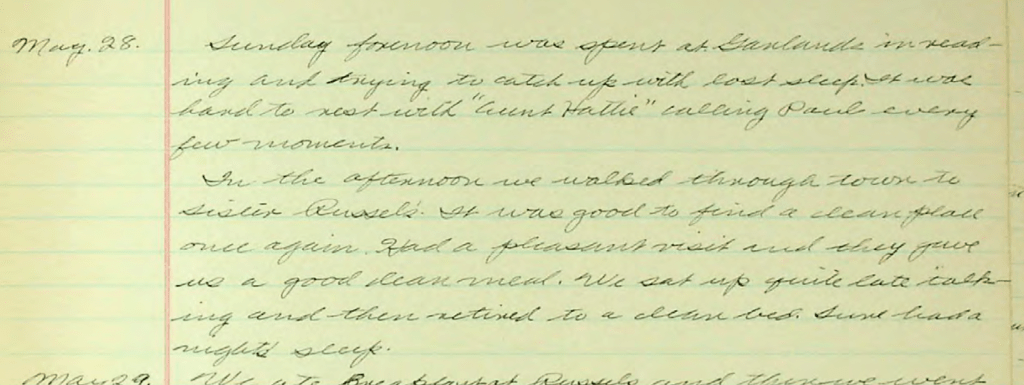 May. 28. Sunday forenoon was spent at Garlands in read-
ing and trying to catch up with lost sleep. It was
hard to rest with "Aunt Hattie" calling Paul every
few moments.
In the afternoon we walked through town to
Sister Russel's. It was good to find a clean place
once again. Had a pleasant visit and they gave
us a good clean meal. We sat up quite late talk-
ing and then retired to a clean bed. Sure had a
night's sleep.
May 29. We ate breakfast at Russels and then we went